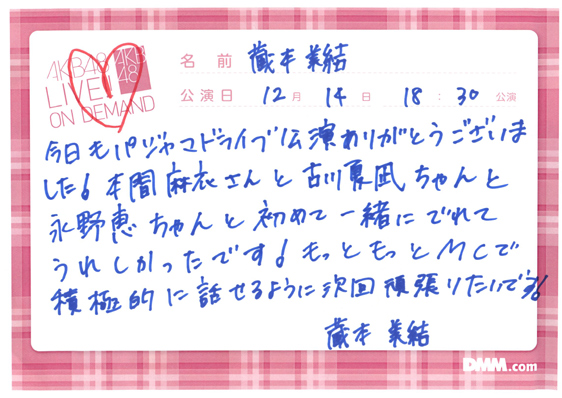 AKB48
LIVE!!
ON DEMAND
AKB
48
名前 蔵本美結
公演日 12月 14日 18:30公演
今日もパジャマドライブ公演ありがとうございま
した! 本間麻衣さんと古川夏凪ちゃんと
永野恵ちゃんと初めて一緒にでれて
うれしかったです! もっともっとMCで
積極的に話せるように次回頑張りたいです!
蔵本美結
DMM.com